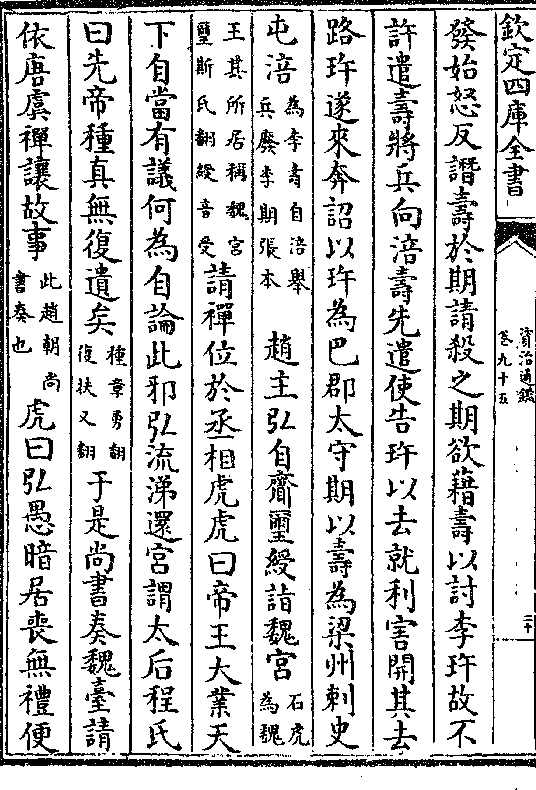 欽定四庫全書
資治通鑑
卷九十五
三十
發始怒反譖壽於期請殺之期欲藉壽以討李玝故不
許遣壽將兵向涪壽先遣使告玝以去就利害開其去
路玝遂來奔詔以玝為巴郡太守期以壽為梁州刺史
屯涪為李壽自涪舉兵廢李期張本 趙主弘自齎璽綬詣魏宮石虎為魏
王其所居稱魏宮璽斯氏翻綬音受請禪位於丞相虎虎曰帝王大業天
下自當有議何為自論此邪弘流涕還宮謂太后程氏
曰先帝種真無復遺矣種章勇翻復扶又翻于是尚書奏魏臺請
依唐虞禪讓故事此趙朝尚書奏也虎曰弘愚暗居喪無禮便